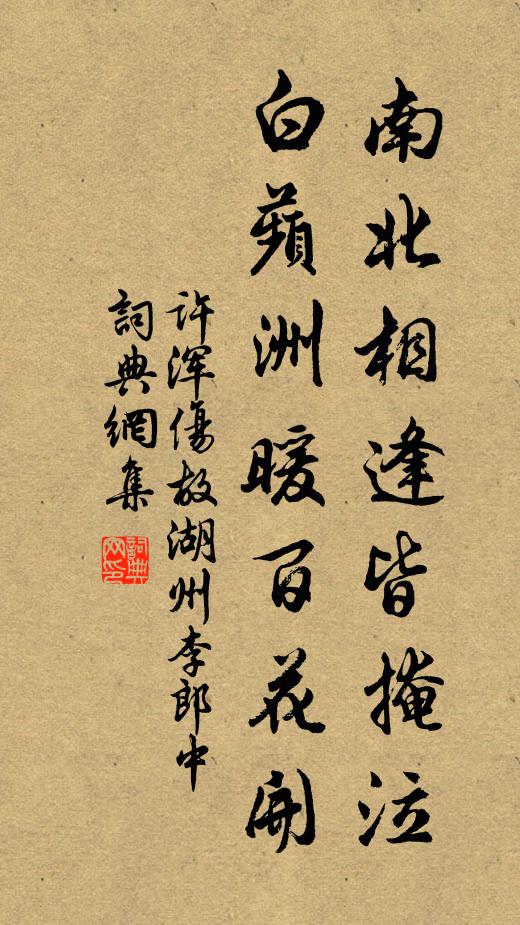 南北相逢皆掩泣
白蘋洲暖百花開
许浑傷故湖州李郎中
詞典網集
詞典网印